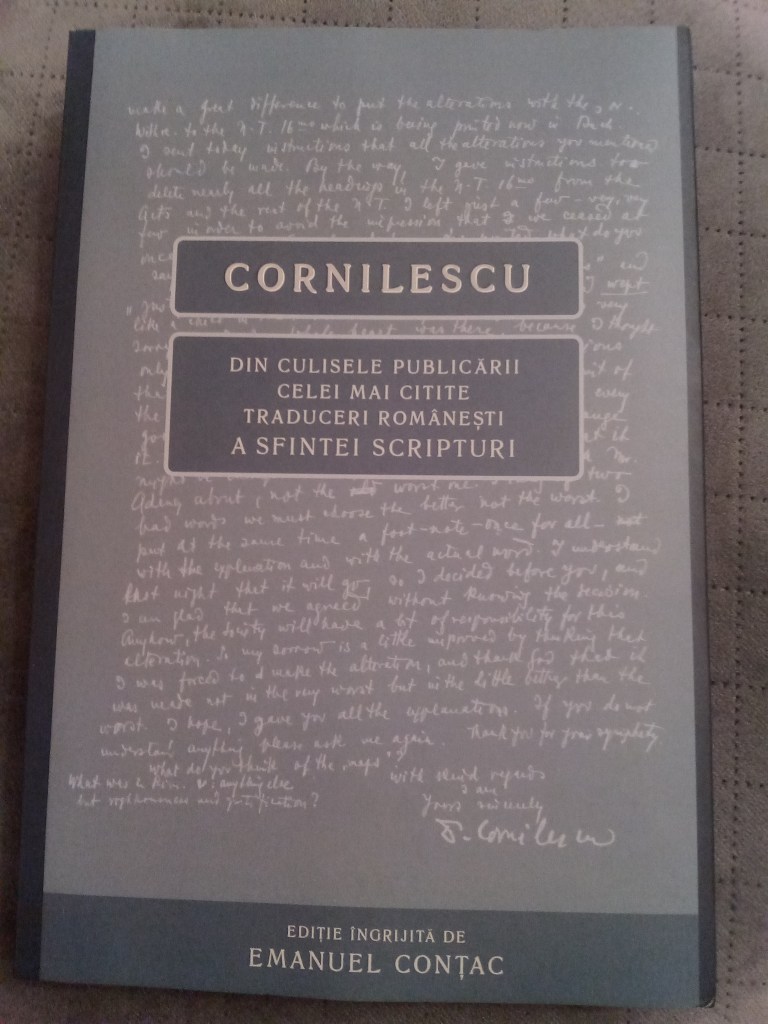 make a great difference to put the alterations with the, or
with a. to the N.T. 16mo which is being printed now in Buch
I sent today instructions that all the alterations you mentioned
should be made. By the way, I gave instructions to
delete nearly all the headings in the N.T. 16mo from the
Acts and the rest of the N.T. I left just a few - very, very
few in order to avoid the impression that I we ceased at
what do you
once
and
I wept
very
CORNILESCU
like a
whole heart was there, because I thought
DIN CULISELE PUBLICĂRII
CELEI MAI CITITE
TRADUCERI ROMÂNEȘTI
A SFINTEI SCRIPTURI
about, not the worst one
two
bad words we must choose the better not the worst. I
put at the same time a foot-note - once for all - not
with the explanation and with the actual word. I understand
last night that it will go. So I decided before you, and
I am glad that we agreed without knowing the decision.
Anyhow, the Society will have a bit of responsibility for this
alteration. So my sorrow is a little improved by thinking that
I was forced to make the alteration, and thank God that it
was made not in the very worst but in the little better than the
worst. I hope, I gave you all the explanations. If you do not
understand anything please ask me again. Thank you for your sympathy
what do you think of the maps?
with kind regards
What was in Rom. V: anything else
I am
but righteousness and justification?
Yours sincerely
D. Cornilescu
EDIȚIE ÎNGRIJITĂ DE
EMANUEL CONȚAC